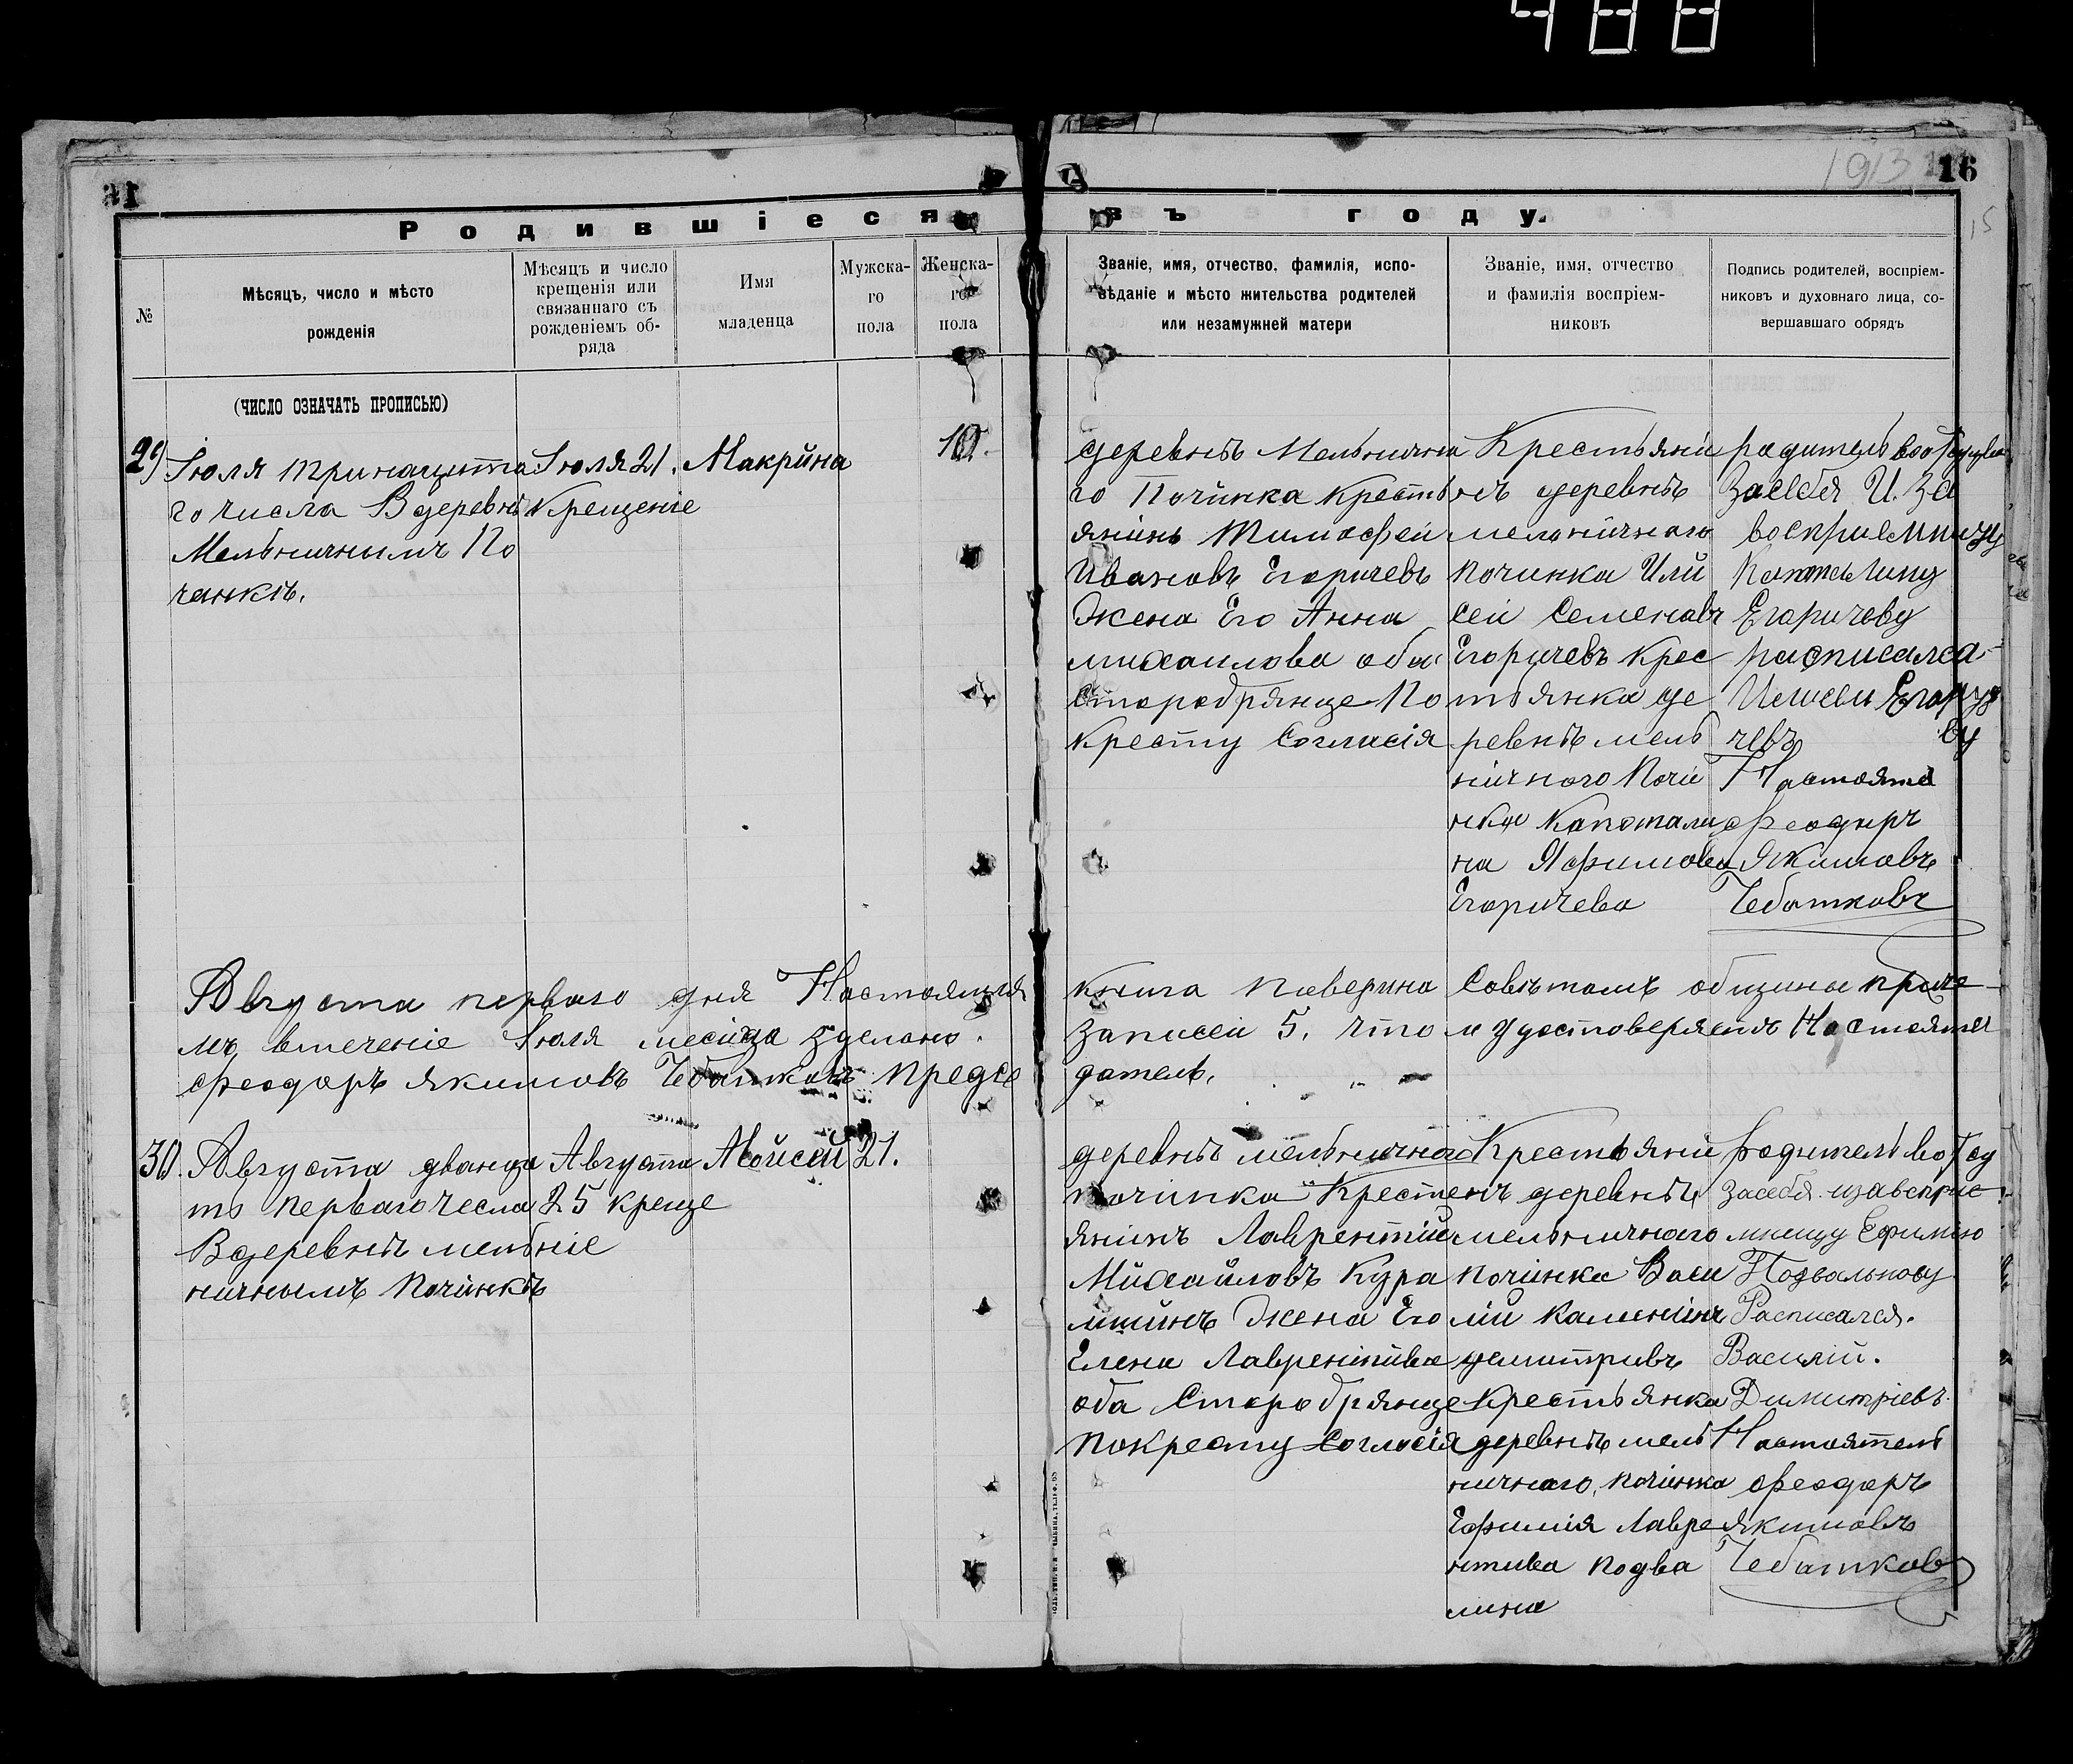 488
1913
16
15
Родившіеся въ году.
№
Мѣсяцъ, число и мѣсто
рожденія
Мѣсяцъ и число
крещенія или
связаннаго съ
рожденіемъ об-
ряда
Имя
младенца
Мужска-
го
пола
Женска-
го
пола
Званіе, имя, отчество, фамилія, испо-
вѣданіе и мѣсто жительства родителей
или незамужней матери
Званіе, имя, отчество
и фамилія воспріем-
никовъ
Подпись родителей, воспріем-
никовъ и духовнаго лица, со-
вершавшаго обрядъ
(ЧИСЛО ОЗНАЧАТЬ ПРОПИСЬЮ)
29
Іюля тринацита
го числа В деревнѣ
Мельничнымъ По
чинкѣ.
Іюля 21.
Крещеніе
Макрина
10.
деревнѣ Мельнична
го Починка крестъ
янинъ Тимофей
Ивановъ Егоричевъ
Жена Его Анна
михаилова оба
Старобрянце По
Кресту Согласія
Крестьяни
нъ деревнѣ
мельничного
починка Или
сей Семеновъ
Егоричевъ Крес
тьянка де
ревнѣ мель
ничного Почи
нка Капотали
на Яфимова
Егоричева
родитель
За себя И. За
восприемницу
Егоричеву
расписался
Илисей Егори
чевъ
Настояте
Феодиръ
Якимовъ
Чебатковъ
Августа перваго дня Настоящая книга паверина Савѣтомъ общины приче
мъ втеченіе Іюля месица зделано записей 5. что и удостоверяетъ Настоятел
Феодоръ Якимовъ Чебатковъ Предсе датель.
30.
Августа дванца
ть перваго чесла
В деревнѣ мельние
ничнымъ Починкѣ
Августа
25 креще
Мойсей
21.
деревнѣ мельнична
починка Крест
янинъ Лаврентій
Михайловъ Кура
мшинъ Жена Его
Елена Лаврентива
оба Старобрянце
Покресту Согласія
Крестьяни
нъ деревнѣ
мельничнаго
починка Васи
лій Каменинъ
демитривъ
Крестьянка
деревнѣ мель
ничнаго, починка
Ефимія Лавре
нтива Подва
лина
родитель
за себя и за восприе
мницу Ефимію
Подвальнову
Расписался.
Василій.
Димитріевъ.
Настоятель
Феодоръ
Якимовъ
Чебатков